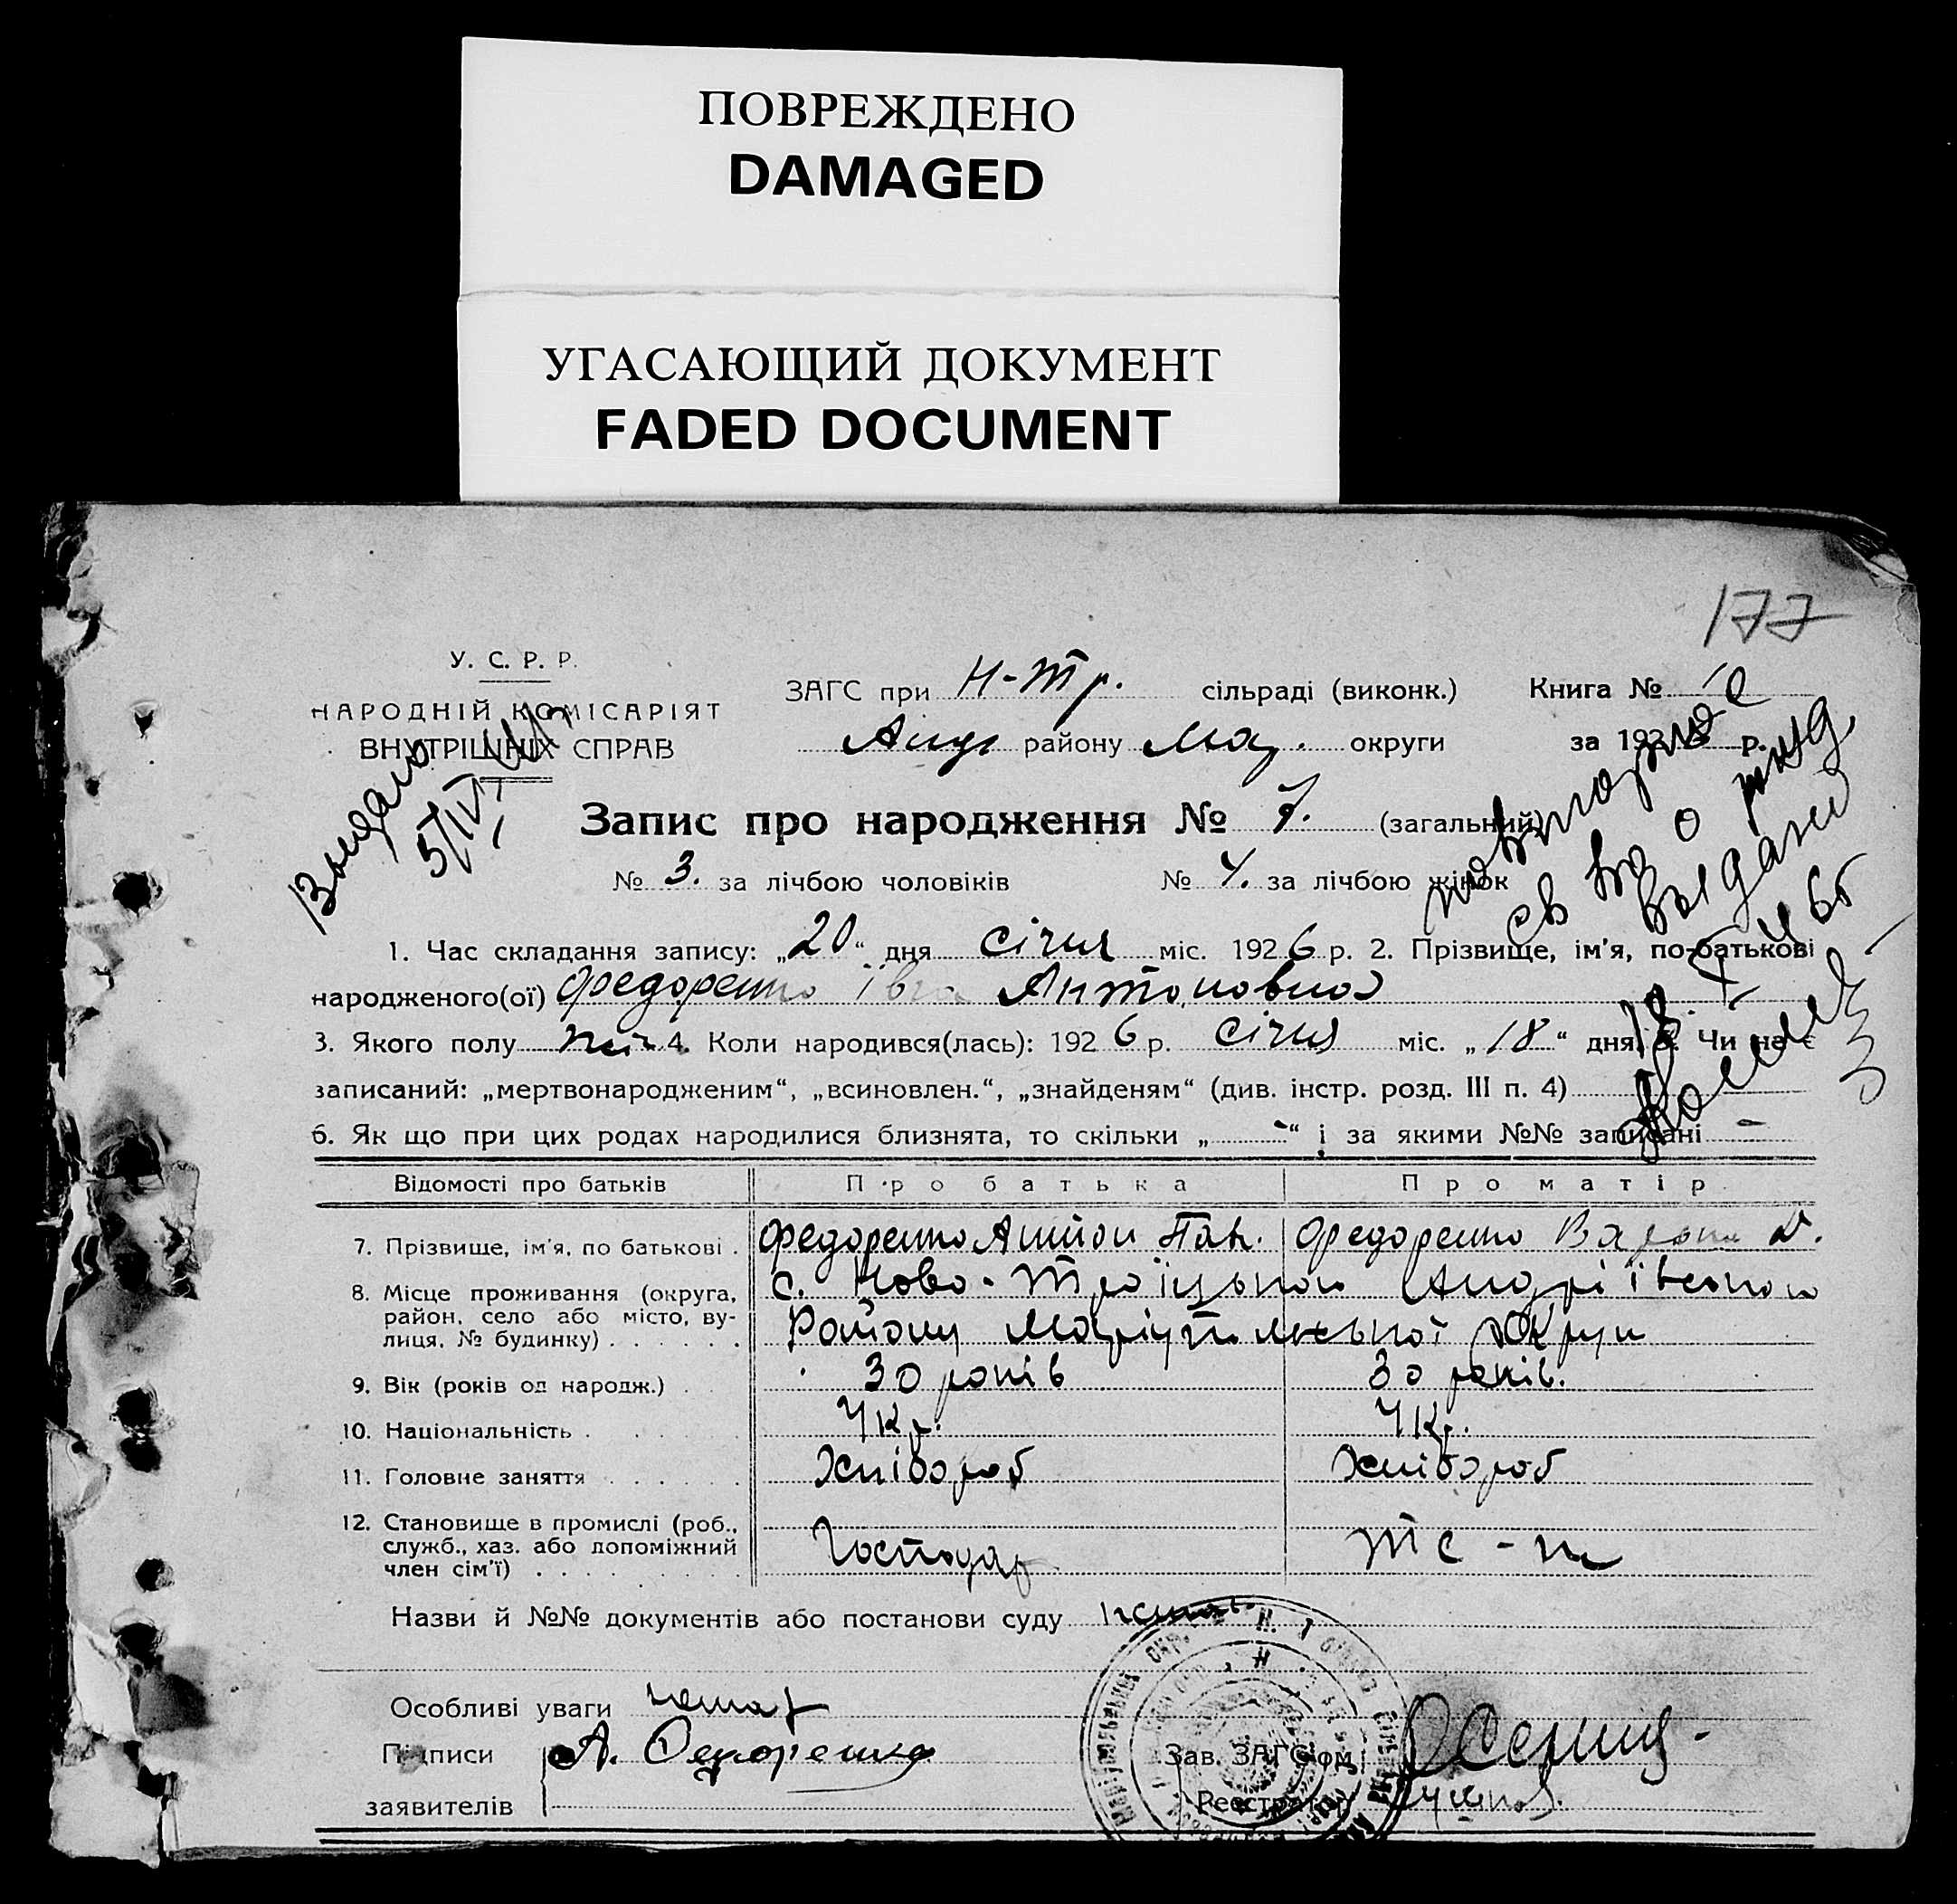 ПОВРЕЖДЕНО
DAMAGED
УГАСАЮЩИЙ ДОКУМЕНТ
FADED DOCUMENT
177
У. С. Р. Р.
НАРОДНІЙ КОМІСАРІЯТ
ВНУТРІШНІХ СПРАВ
ЗАГС при Н-Тр. сільраді (виконк.) Книга №
району Мар. округи за 192 р.
Видано
5/IV
Запис про народження № 7. (загальний)
№ 3. за лічбою чоловіків № 4. за лічбою жінок
повторное
св во о рожд
выдано
1. Час складання запису: „20“ дня січня міс. 1926 р. 2. Прізвище, ім'я, по-батькові
народженого(ої) Федоренко Івга Антоновна
3. Якого полу жін 4. Коли народився(лась): 1926 р. січня міс. „18“ дня 5. Чи не є
записаний: „мертвонародженим“, „всиновлен.“, „знайденям“ (див. інстр. розд. III п. 4)
6. Як що при цих родах народилися близнята, то скільки „-“ і за якими №№ записані -
Відомості про батьків Про батька Про матір
7. Прізвище, ім'я, по батькові . Федоренко Антон Пан. Федоренко
8. Місце проживання (округа, район, село або місто, вулиця, № будинку) с. Ново-Троїцького Андріївського
Району Маріупольської Округи
9. Вік (років од народж.) 30 років 30 років.
10. Національність . Укр. Укр.
11. Головне заняття Хлібороб Хлібороб
12. Становище в промислі (роб., служб., хаз. або допоміжний член сім'ї) Господар те-ж
Назви й №№ документів або постанови суду немає
Особливі уваги немає
Підписи А. Федоренко Зав. ЗАГС'ом
заявителів Реєстратор